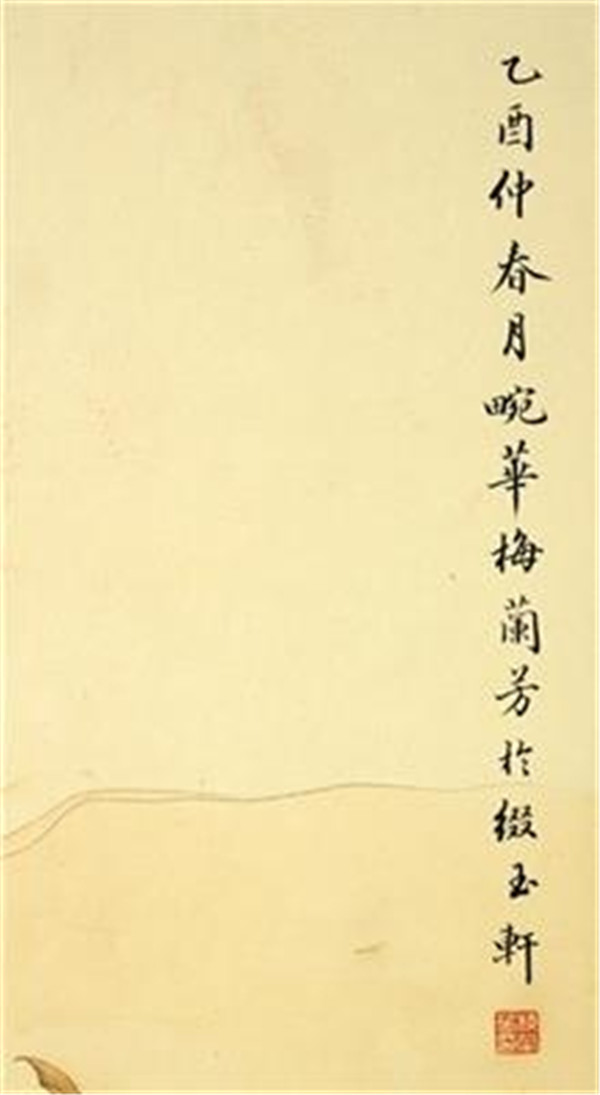 乙酉仲春月畹華梅蘭芳於綴玉軒